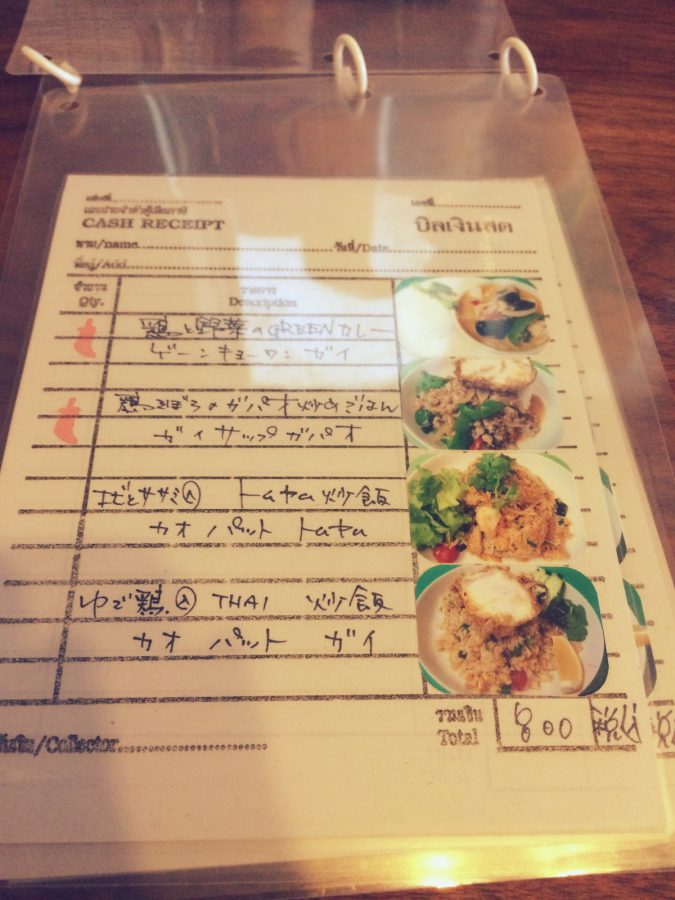 เล่มที่ เลขที่
เลขประจำตัวผู้เสียภาษี
CASH RECEIPT บิลเงินสด
นาม/name วันที่/Date
ที่อยู่/Add
จำนวน รายการ
Qty. Description
鶏と野菜のGREENカレー
ゲーンキョーワンガイ
鶏そぼろのガパオ炒めごはん
ガイサップガパオ
エビとササミ入 炒飯
カオパット
ゆで鶏入 THAI 炒飯
カオ パット ガイ
รวมเงิน
Total 800
/Collector